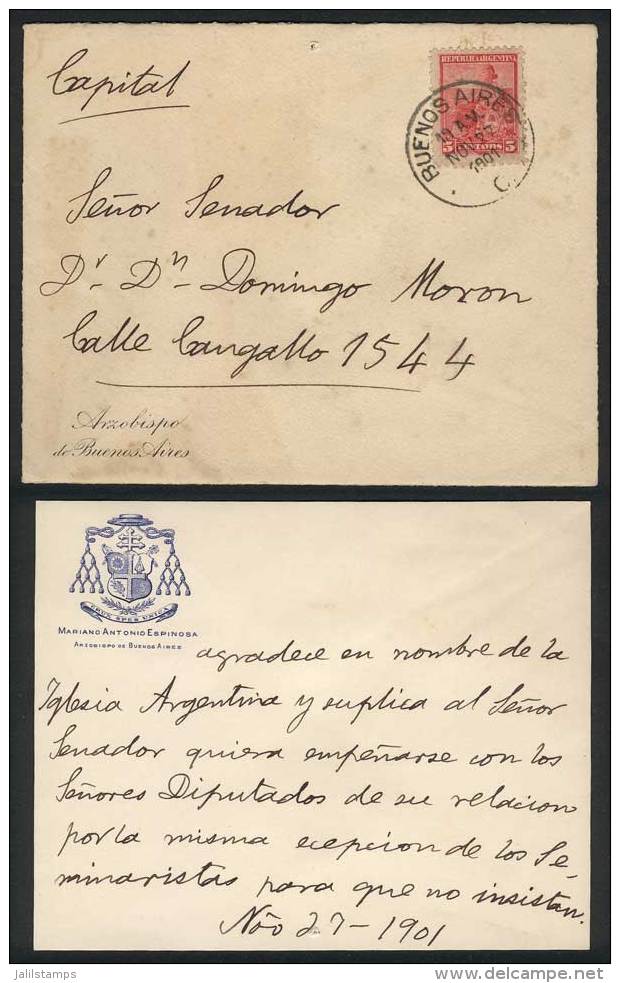 Capital
REPUBLICA ARGENTINA
5 CENTAVOS 5
BUENOS AIRES
11 A.M.
NOV 27
1901
C.
Señor Senador
Dr. Dn. Domingo Moron
Calle Cangallo 1544
Arzobispo
de Buenos Aires
CRUX SPES UNICA
MARIANO ANTONIO ESPINOSA
ARZOBISPO DE BUENOS AIRES
agradece en nombre de la
Iglesia Argentina y suplica al Señor
Senador quiera empeñarse con los
Señores Diputados de su relacion
por la misma ecepcion de los Se-
minaristas para que no insistan.
Nõo 27-1901
jalilstamps
www.delcampe.net